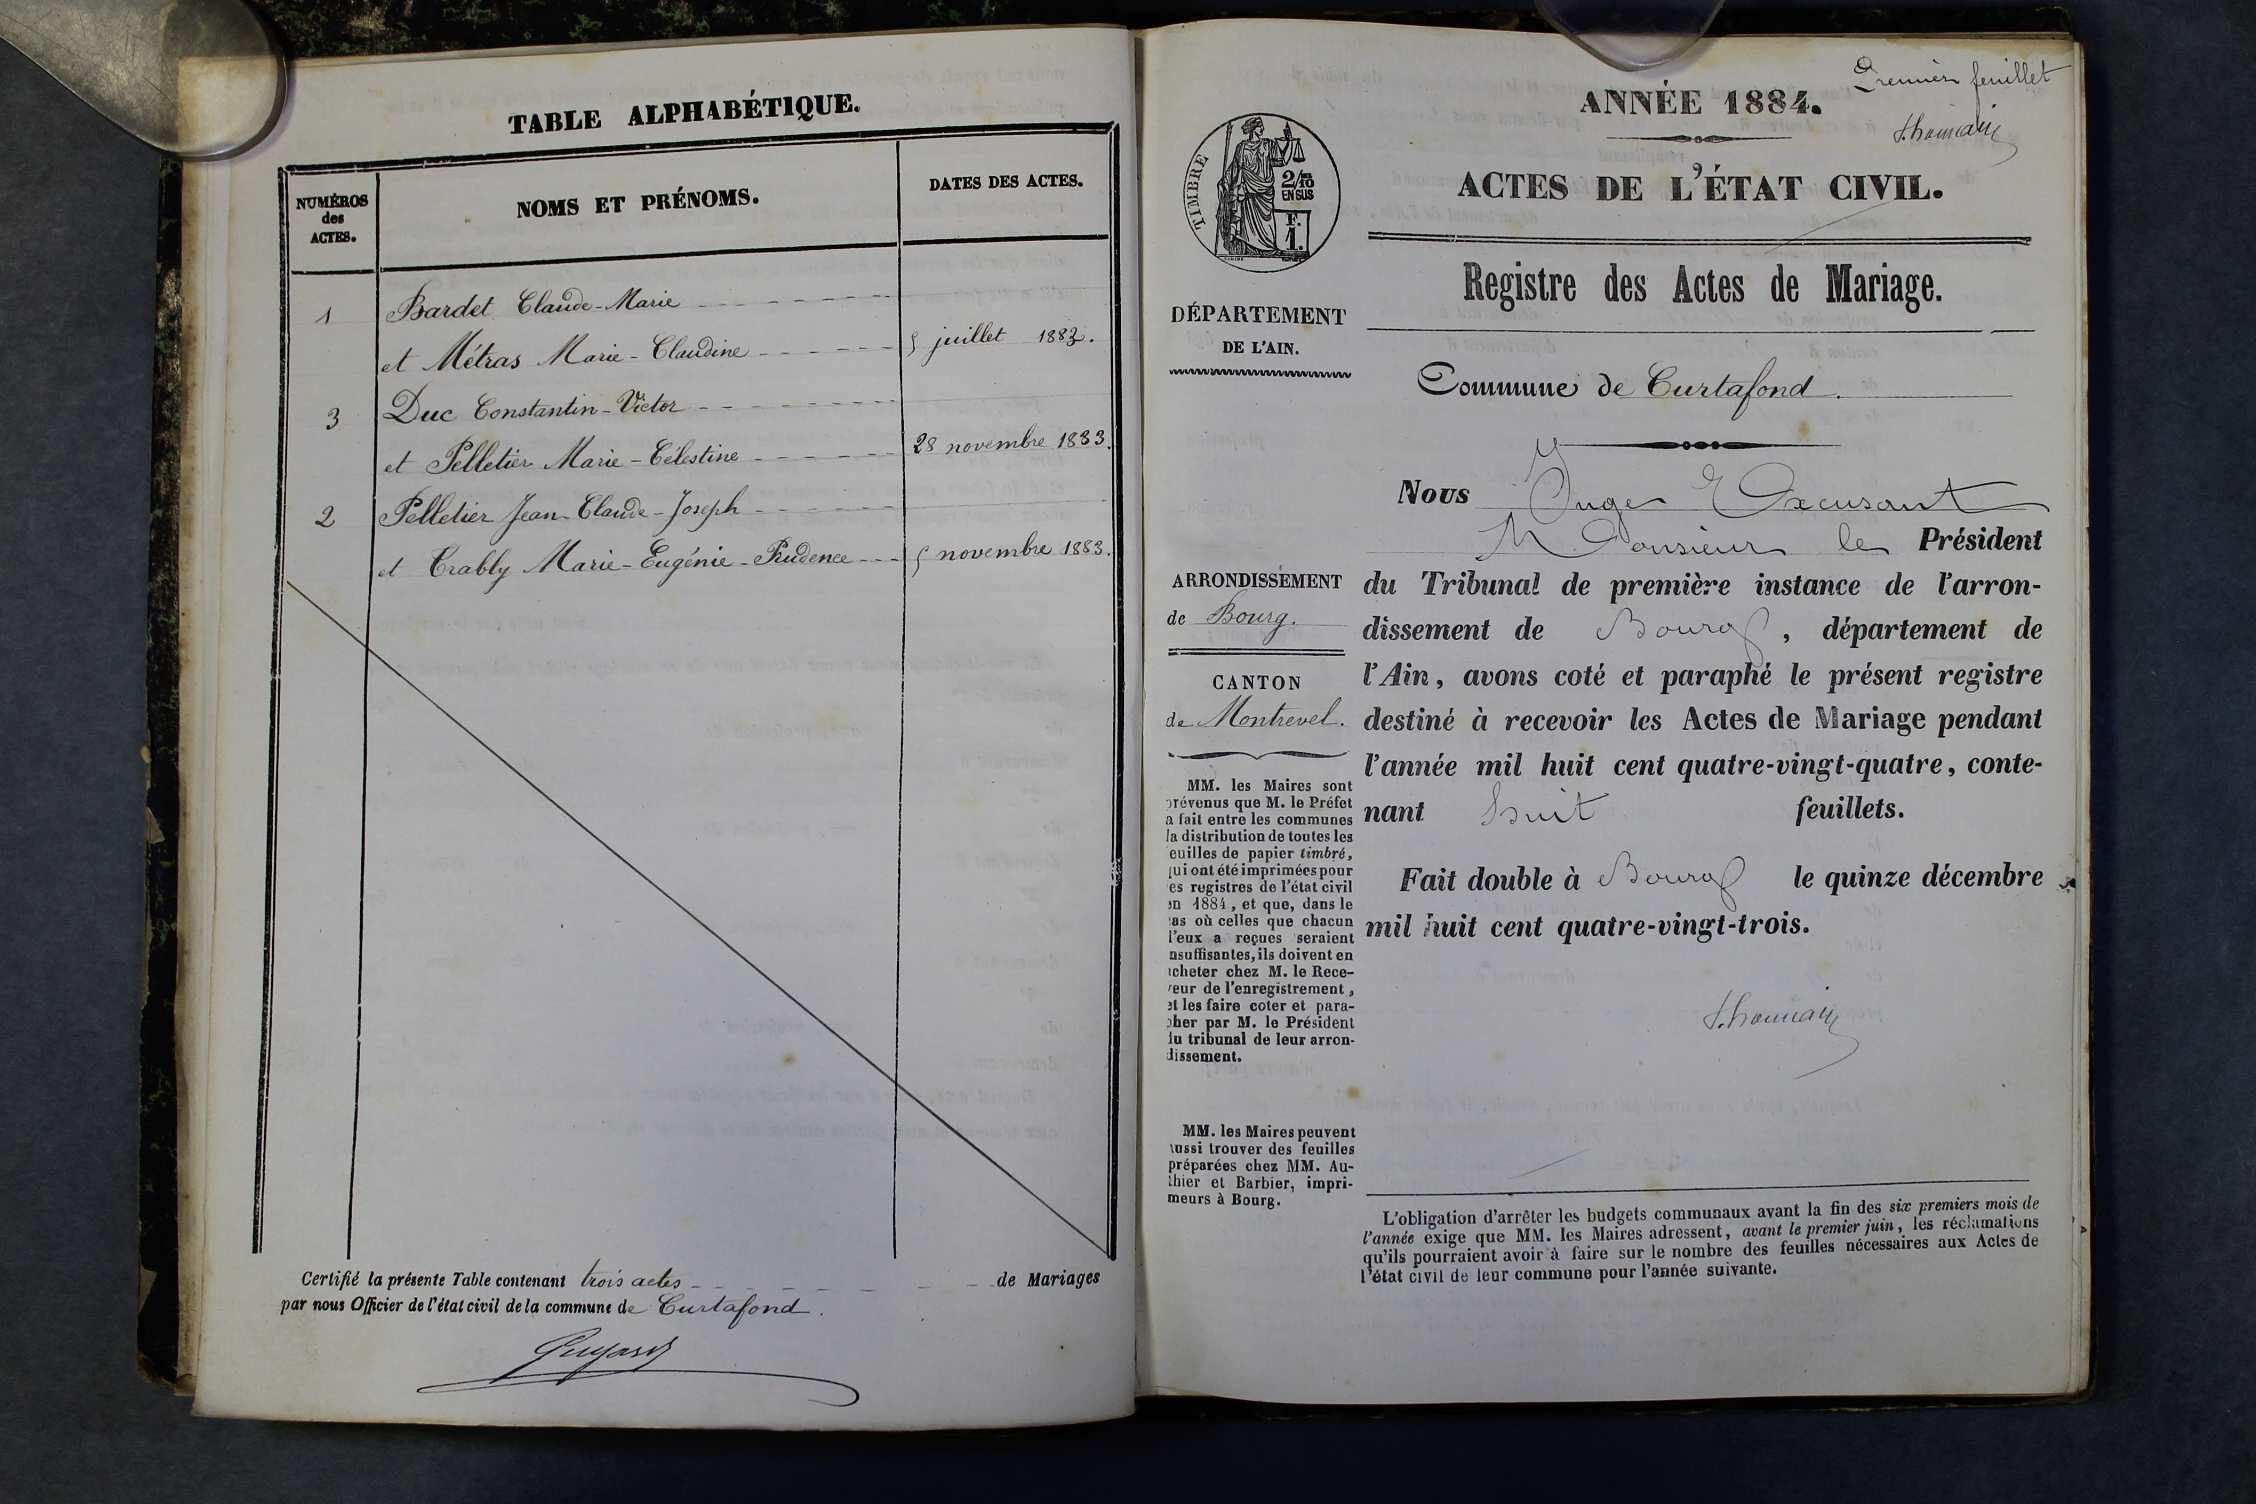 TABLE ALPHABÉTIQUE.
NUMÉROS
des
ACTES.
NOMS ET PRÉNOMS.
DATES DES ACTES.
1 Bardet Claude-Marie
et Métras Marie-Claudine 5 juillet 1883.
3 Duc Constantin-Victor
et Pelletier Marie-Célestine 28 novembre 1883.
2 Pelletier Jean-Claude-Joseph
et Crably Marie-Eugénie-Prudence 5 novembre 1883.
Certifié la présente Table contenant trois actes de Mariages
par nous Officier de l'état civil de la commune de Curtafond.
Premier feuillet
ANNÉE 1884.
ACTES DE L'ÉTAT CIVIL.
TIMBRE
2/10
EN SUS
F.
1.
Registre des Actes de Mariage.
DÉPARTEMENT
DE L'AIN.
Commune de Curtafond.
Nous Juge Excusant
Monsieur le Président
du Tribunal de première instance de l'arron-
dissement de Bourg, département de
l'Ain, avons coté et paraphé le présent registre
destiné à recevoir les Actes de Mariage pendant
l'année mil huit cent quatre-vingt-quatre, conte-
nant huit feuillets.
Fait double à Bourg le quinze décembre
mil huit cent quatre-vingt-trois.
ARRONDISSEMENT
de Bourg.
CANTON
de Montrevel.
MM. les Maires sont
prévenus que M. le Préfet
a fait entre les communes
la distribution de toutes les
euilles de papier timbré,
qui ont été imprimées pour
es registres de l'état civil
en 1884, et que, dans le
as où celles que chacun
l'eux a reçues seraient
nsuffisantes, ils doivent en
cheter chez M. le Rece-
veur de l'enregistrement,
et les faire coter et para-
pher par M. le Président
du tribunal de leur arron-
dissement.
MM. les Maires peuvent
aussi trouver des feuilles
préparées chez MM. Au-
thier et Barbier, impri-
meurs à Bourg.
L'obligation d'arrêter les budgets communaux avant la fin des six premiers mois de
l'année exige que MM. les Maires adressent, avant le premier juin, les réclamations
qu'ils pourraient avoir à faire sur le nombre des feuilles nécessaires aux Actes de
l'état civil de leur commune pour l'année suivante.